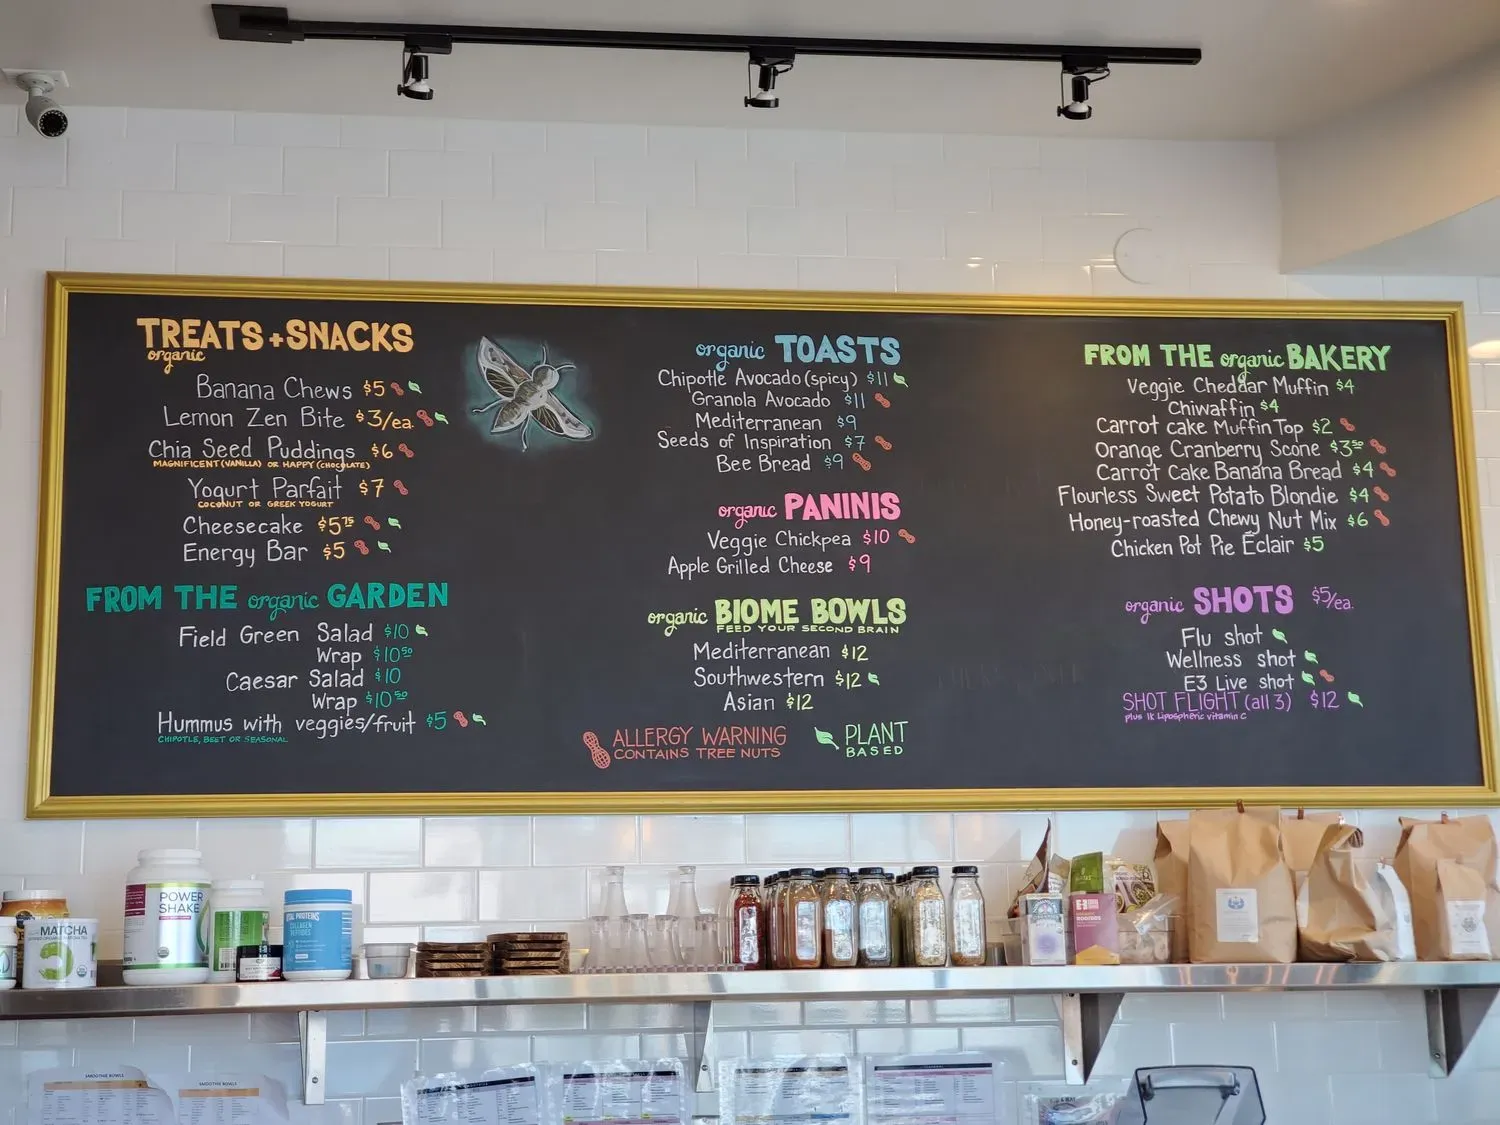 TREATS + SNACKS
organic
Banana Chews $5
Lemon Zen Bite $3/ea.
Chia Seed Puddings $6
MAGNIFICENT (VANILLA) OR HAPPY (CHOCOLATE)
Yogurt Parfait $7
COCONUT OR GREEK YOGURT
Cheesecake $5.75
Energy Bar $5
FROM THE organic GARDEN
Field Green Salad $10
Wrap $10.50
Caesar Salad $10
Wrap $10.50
Hummus with veggies/fruit $5
CHIPOTLE, BEET OR SEASONAL
organic TOASTS
Chipotle Avocado (spicy) $11
Granola Avocado $11
Mediterranean $9
Seeds of Inspiration $7
Bee Bread $9
organic PANINIS
Veggie Chickpea $10
Apple Grilled Cheese $9
organic BIOME BOWLS
FEED YOUR SECOND BRAIN
Mediterranean $12
Southwestern $12
Asian $12
ALLERGY WARNING
CONTAINS TREE NUTS
PLANT
BASED
FROM THE organic BAKERY
Veggie Cheddar Muffin $4
Chiwaffin $4
Carrot cake Muffin Top $2
Orange Cranberry Scone $3.50
Carrot Cake Banana Bread $4
Flourless Sweet Potato Blondie $4
Honey-roasted Chewy Nut Mix $6
Chicken Pot Pie Éclair $5
organic SHOTS $5/ea.
Flu shot
Wellness shot
E3 Live shot
SHOT FLIGHT (all 3) $12
plus 1k Lipospheric vitamin C
MATCHA
POWER
SHAKE
VITAL PROTEINS
COLLAGEN
PEPTIDES
SMOOTHIE BOWLS
SMOOTHIE BOWLS